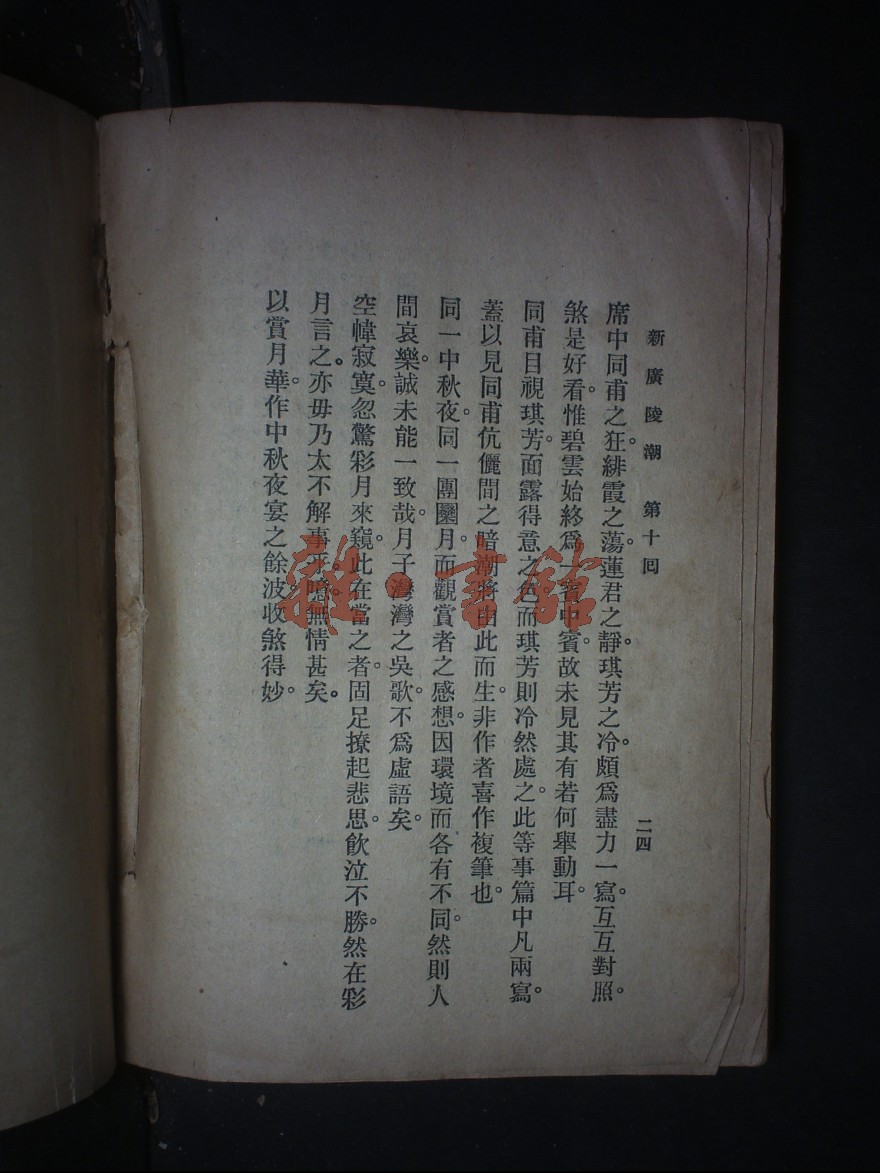 新廣陵潮 第十回 二四
席中同甫之狂。緋霞之蕩。蓮君之靜。琪芳之冷。頗爲盡力一寫。互互對照。
煞是好看。惟碧雲始終爲一賓中賓。故未見其有若何舉動耳。
同甫目視琪芳。面露得意之色。而琪芳則冷然處之。此等事篇中凡兩寫。
蓋以見同甫伉儷間之暗潮。將由此而生。非作者喜作複筆也。
同一中秋夜。同一團圞月。而觀賞者之感想。因環境而各有不同。然則人
間哀樂。誠未能一致哉。月子灣灣之吳歌。不爲虛語矣。
空幃寂寞。忽驚彩月來窺。此在當之者。固足撩起悲思。飲泣不勝。然在彩
月言之。亦毋乃太不解事乎。噫。無情甚矣。
以賞月華。作中秋夜宴之餘波。收煞得妙。
雜·書館